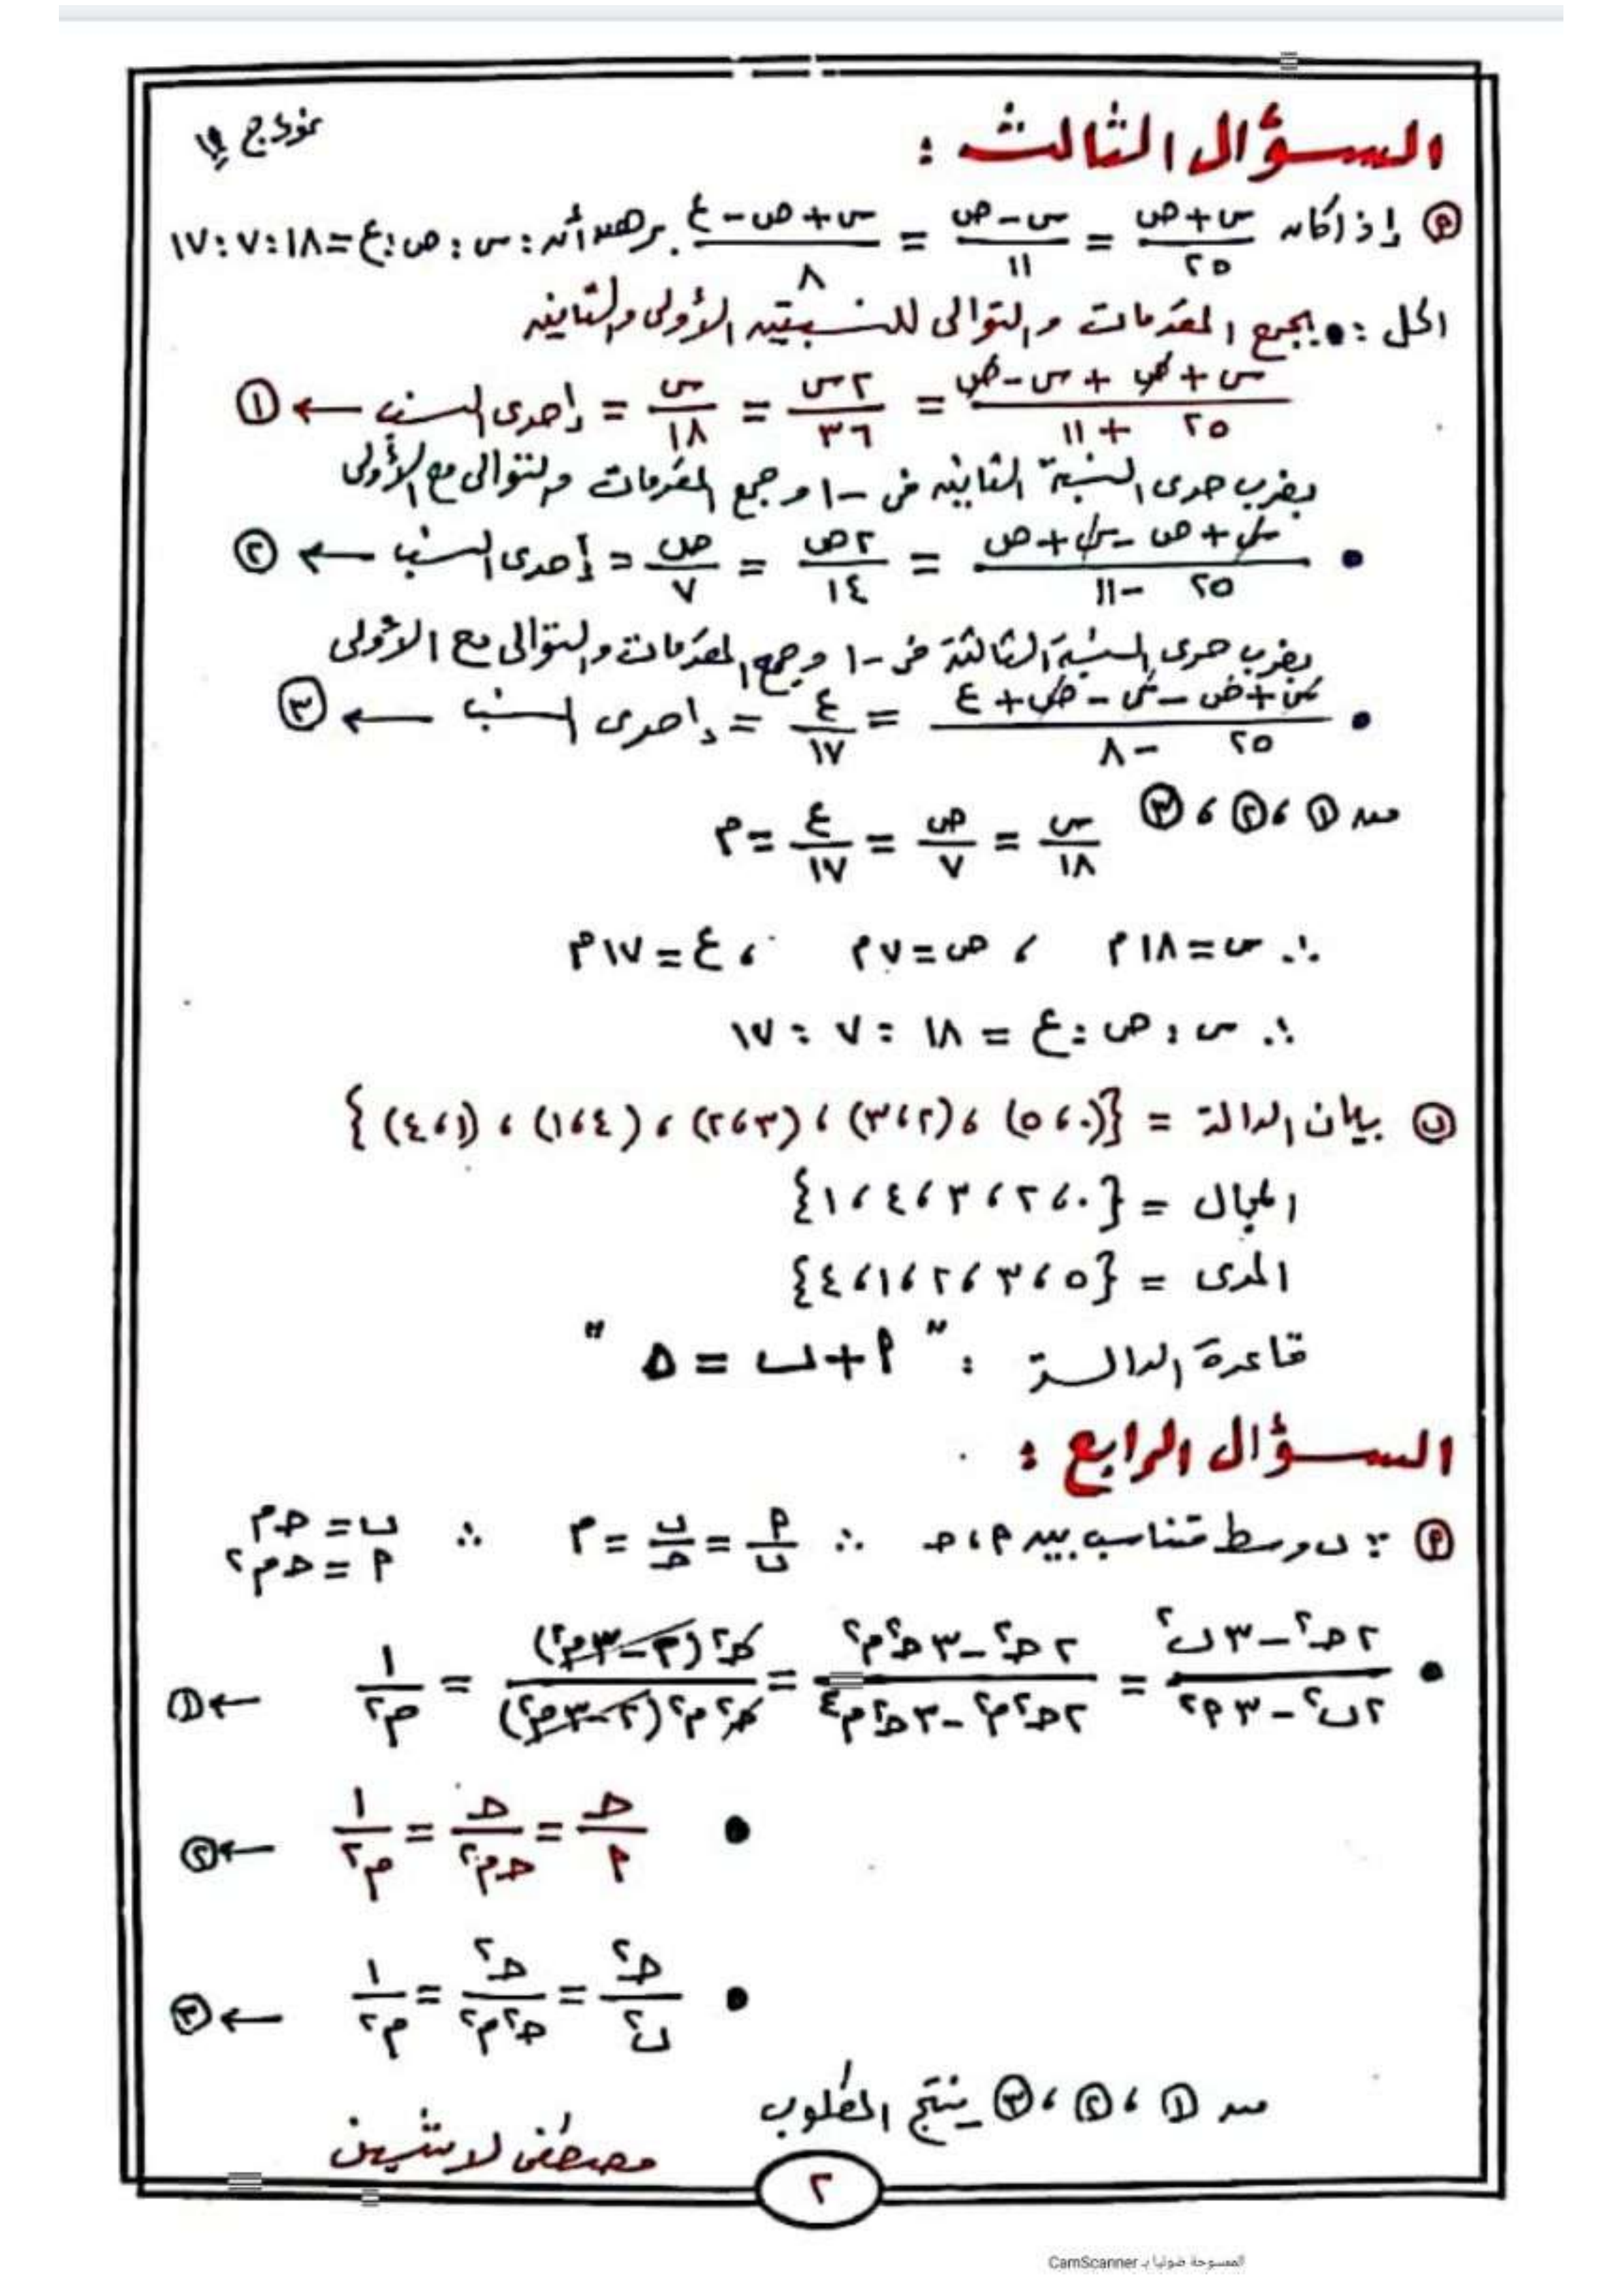 نموذج
السؤال الثالث :
(أ) إذا كان (س+ص)/٢٥ = (س-ص)/١١ = (س+ص-ع)/٨ برهن أن : س : ص : ع = ١٨ : ٧ : ١٧
الحل : • بجمع المقدمات والتوالى للنسبتين الأولى والثانية
(س + ص + س - ص)/(٢٥ + ١١) = ٢س/٣٦ = س/١٨ = إحدى النسب ← ①
بضرب حدى النسبة الثانية فى -١ وجمع المقدمات والتوالى مع الأولى
• (س + ص - س + ص)/(٢٥ - ١١) = ٢ص/١٤ = ص/٧ = إحدى النسب ← ②
بضرب حدى النسبة الثالثة فى -١ وجمع المقدمات والتوالى مع الأولى
• (س + ص - س - ص + ع)/(٢٥ - ٨) = ع/١٧ = إحدى النسب ← ③
من ① ، ② ، ③ س/١٨ = ص/٧ = ع/١٧ = م
∴ س = ١٨م ، ص = ٧م ، ع = ١٧م
∴ س : ص : ع = ١٨ : ٧ : ١٧
(ب) بيان الدالة = {(٠،٥) ، (٢،٣) ، (٣،٢) ، (٤،١) ، (١،٤)}
المجال = {٠ ، ٢ ، ٣ ، ٤ ، ١}
المدى = {٥ ، ٣ ، ٢ ، ١ ، ٤}
قاعدة الدالة : " أ + ب = ٥ "
السؤال الرابع :
(أ) ∵ ب وسط متناسب بين أ ، ج ∴ أ/ب = ب/ج = م ∴ ب = جم
أ = جم²
• (٢ج² - ٣ب²)/(٢ب² - ٣أ²) = (٢ج² - ٣ج²م²)/(٢ج²م² - ٣ج²م⁴) = ج²(٢ - ٣م²)/ج²م²(٢ - ٣م²) = ١/م² ← ①
• ج/أ = ج/جم² = ١/م² ← ②
• ج²/ب² = ج²/ج²م² = ١/م² ← ③
من ① ، ② ، ③ ينتج المطلوب
مصطفى لاشين
٢
الممسوحة ضوئيا بـ CamScanner